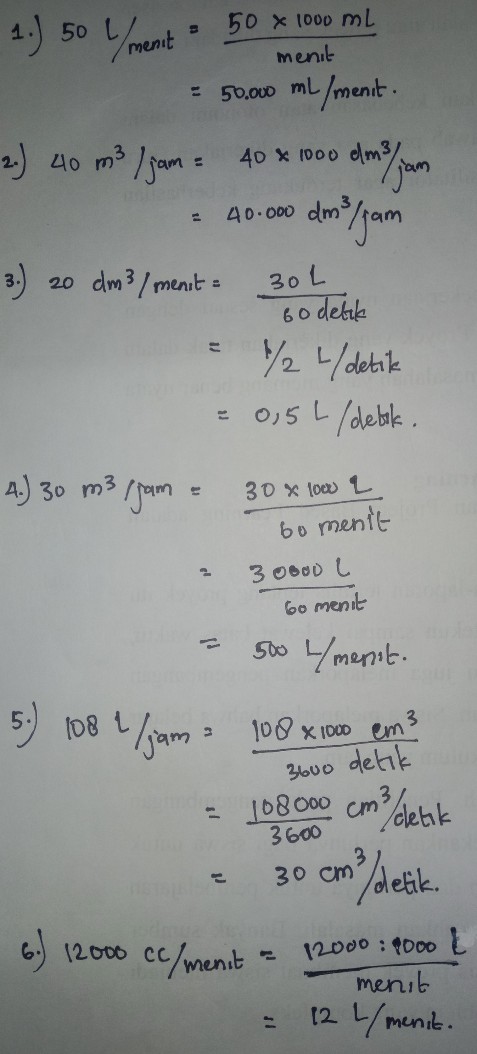 1.) 50 L/menit = 50 x 1000 mL / menit
= 50.000 mL/menit.
2.) 40 m³/jam = 40 x 1000 dm³/jam
= 40.000 dm³/jam
3.) 20 dm³/menit = 30 L / 60 detik
= 1/2 L/detik
= 0,5 L/detik.
4.) 30 m³/jam = 30 x 1000 L / 60 menit
= 30000 L / 60 menit
= 500 L/menit.
5.) 108 L/jam = 108 x 1000 cm³ / 3600 detik
= 108000 / 3600 cm³/detik
= 30 cm³/detik.
6.) 12000 cc/menit = 12000 : 1000 L / menit
= 12 L/menit.